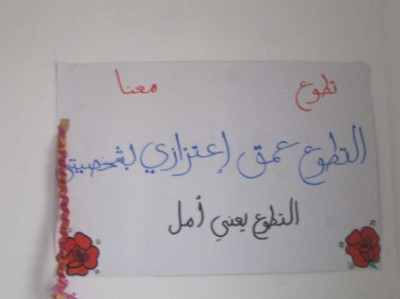 تطوع معنا
التطوع عمق إعتزازي بشخصيتي
التطوع يعني أمل